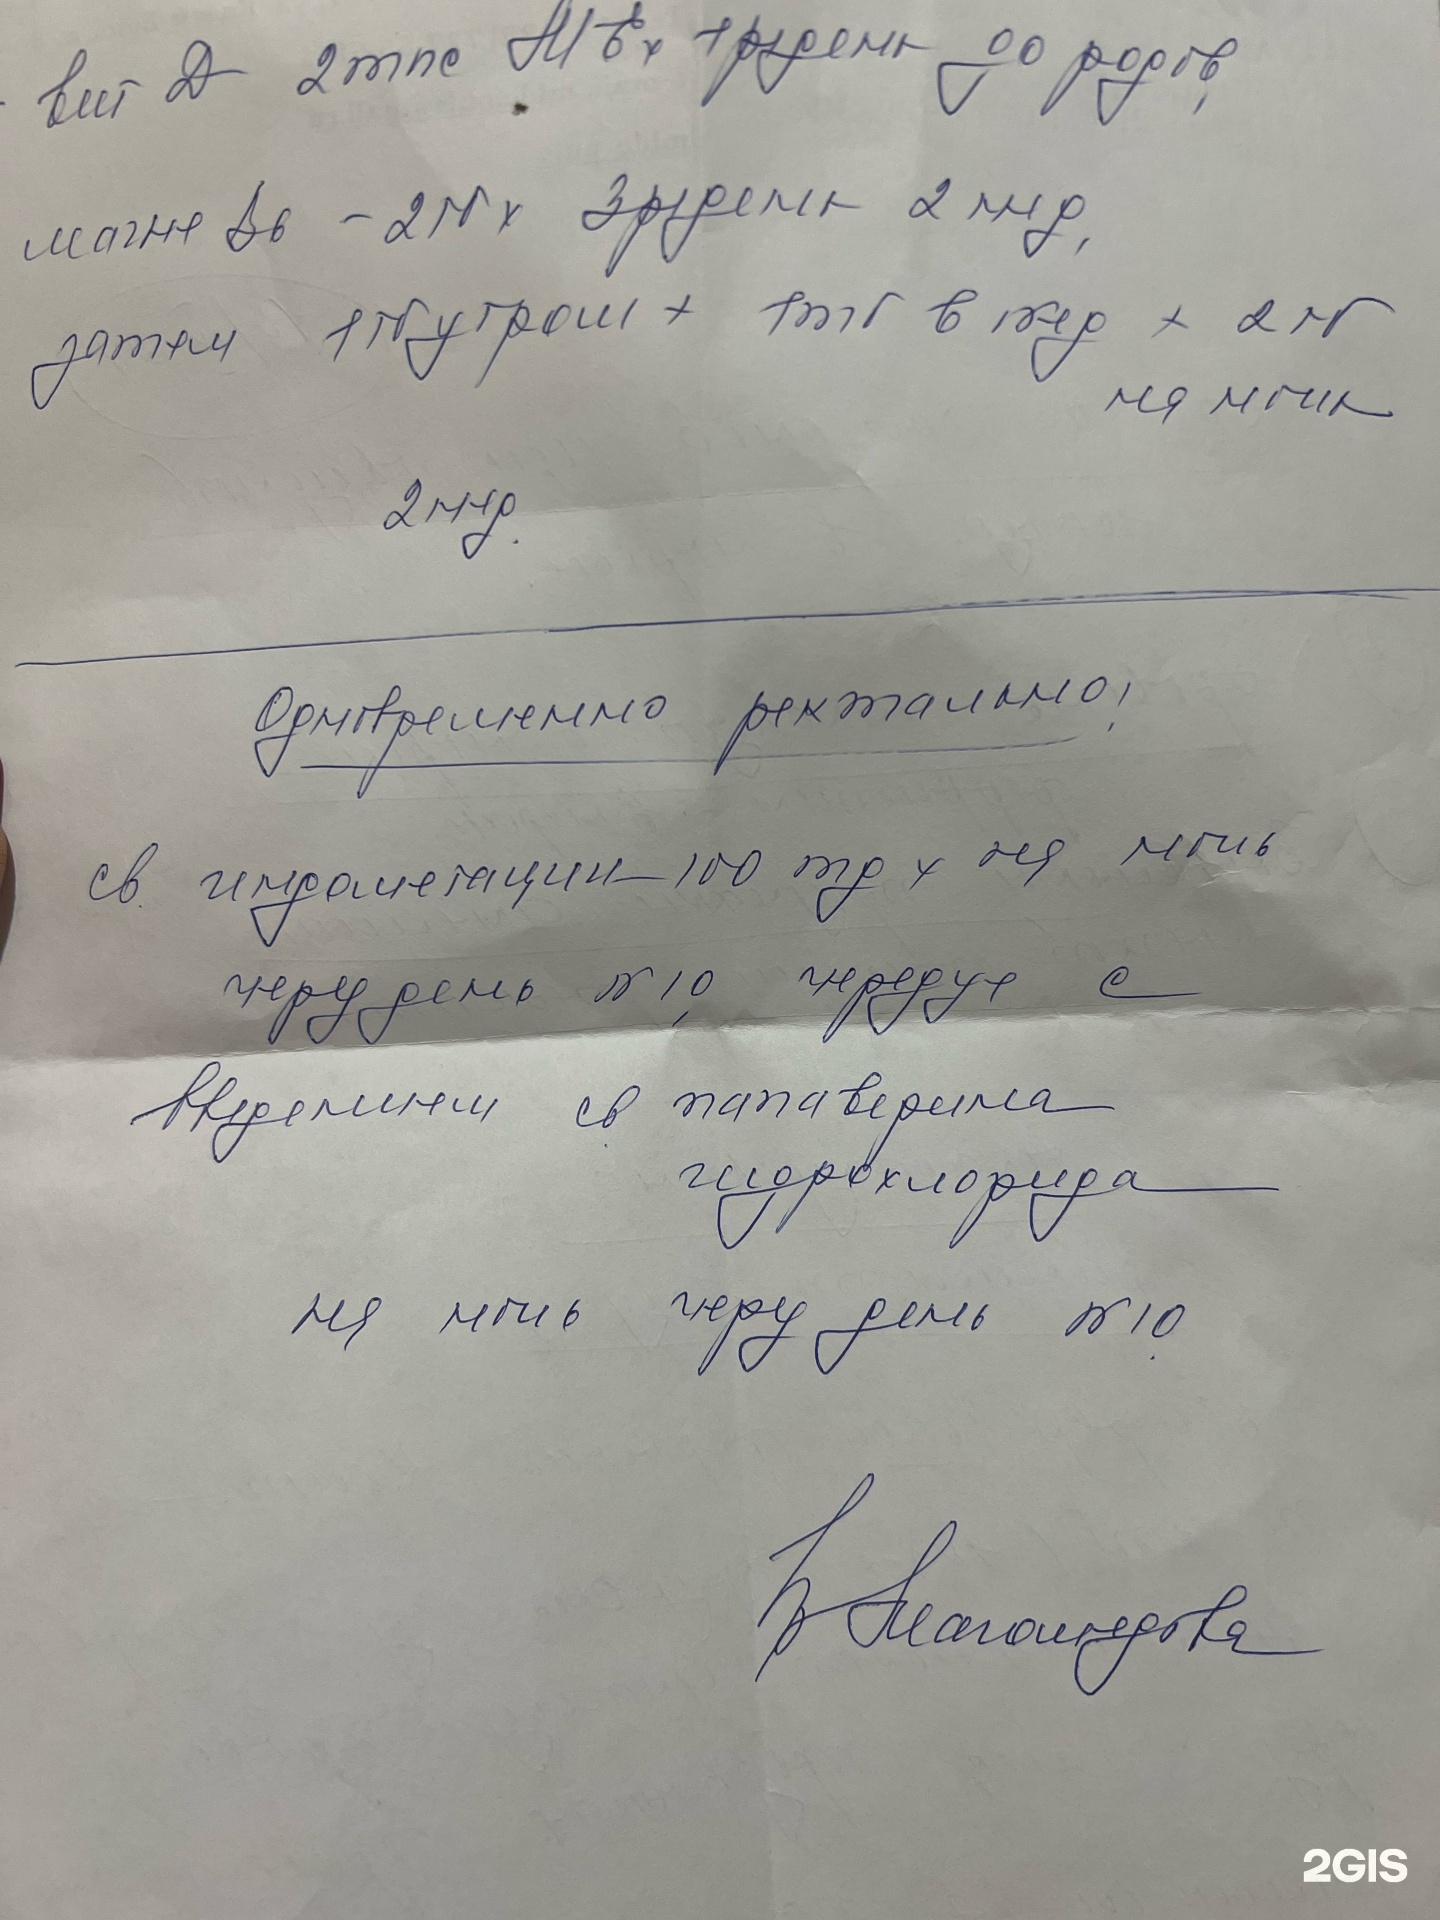 - вит Д 2 тыс МЕ х 1 р/день до родов,
магне В6 - 2 тб х 3 р/день 2 нед,
затем 1 тб утром + 1 тб в обед + 2 тб
на ночь
2 нед.
Одновременно ректально!
св. индометацин 100 мг х на ночь
через день N 10, чередуя с
введением св. папаверина
гидрохлорида
на ночь через день N 10.
Магомедова
2GIS